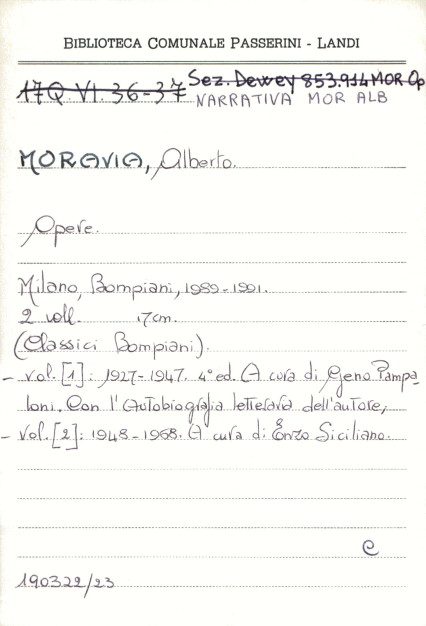 BIBLIOTECA COMUNALE PASSERINI - LANDI
17Q VI. 36-37 Sez. Dewey 853.914 MOR Op
NARRATIVA MOR ALB
MORAVIA, Alberto.
Opere.
Milano, Bompiani, 1989-1991.
2 voll. 17cm.
(Classici Bompiani).
- vol. [1]: 1927-1947. 4ª ed. (A cura di Geno Pampa-
loni. Con l'Autobiografia letteraria dell'autore,
- vol. [2]: 1948-1968. A cura di Enzo Siciliano.
C
190322/23